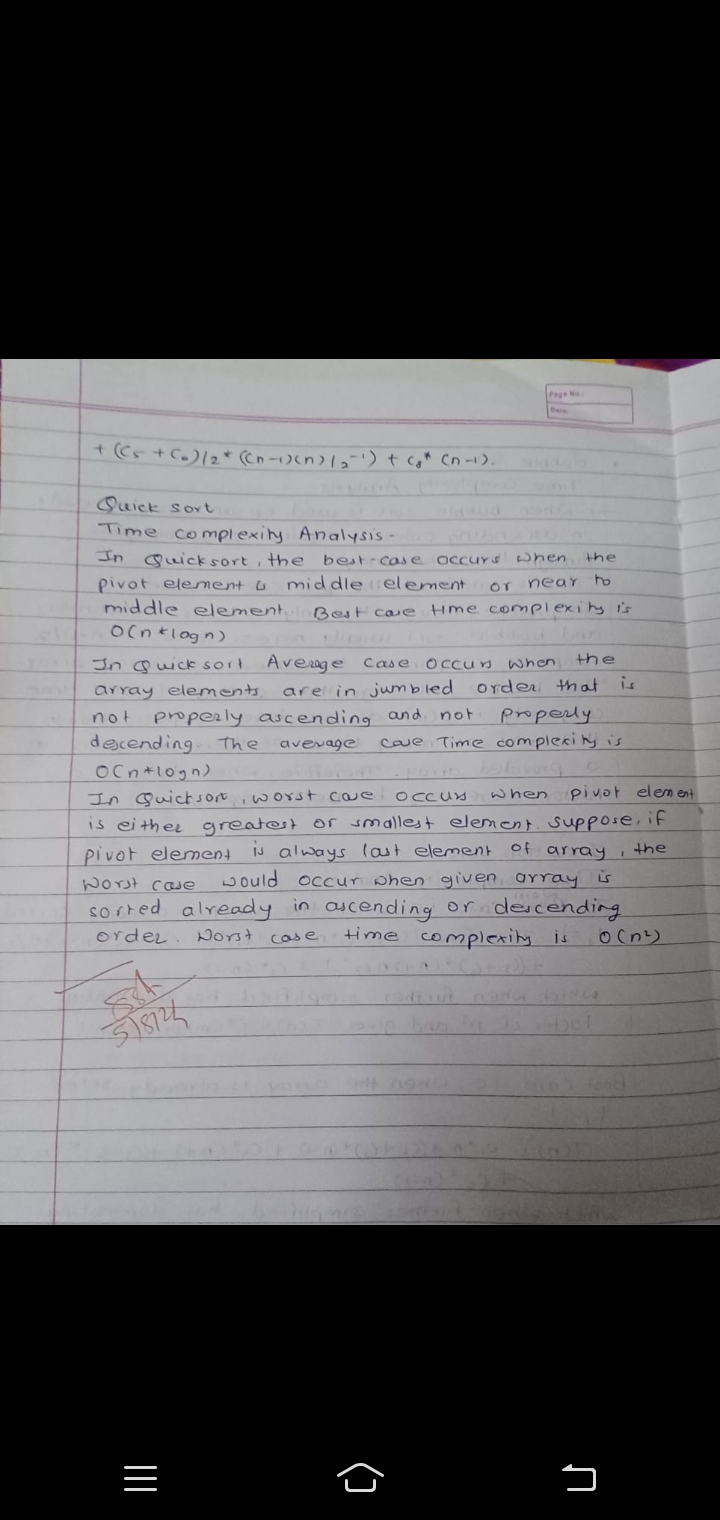 Page No.:
Date:
+ (C5 + C6)/2 * ((n-1)(n)/2 -1) + C8* (n-1).
Quick sort
Time complexity Analysis-
In Quicksort, the best-case occurs when the
pivot element is middle element or near to
middle element. Best case time complexity is
O(n*logn)
In Quick sort Average case occurs when the
array elements are in jumbled order that is
not properly ascending and not properly
descending. The average case Time complexity is
O(n*logn)
In Quicksort, worst case occurs when pivot element
is either greatest or smallest element. suppose, if
pivot element is always last element of array, the
worst case would occur when given array is
sorted already in ascending or descending
order. Worst case time complexity is O(n²)